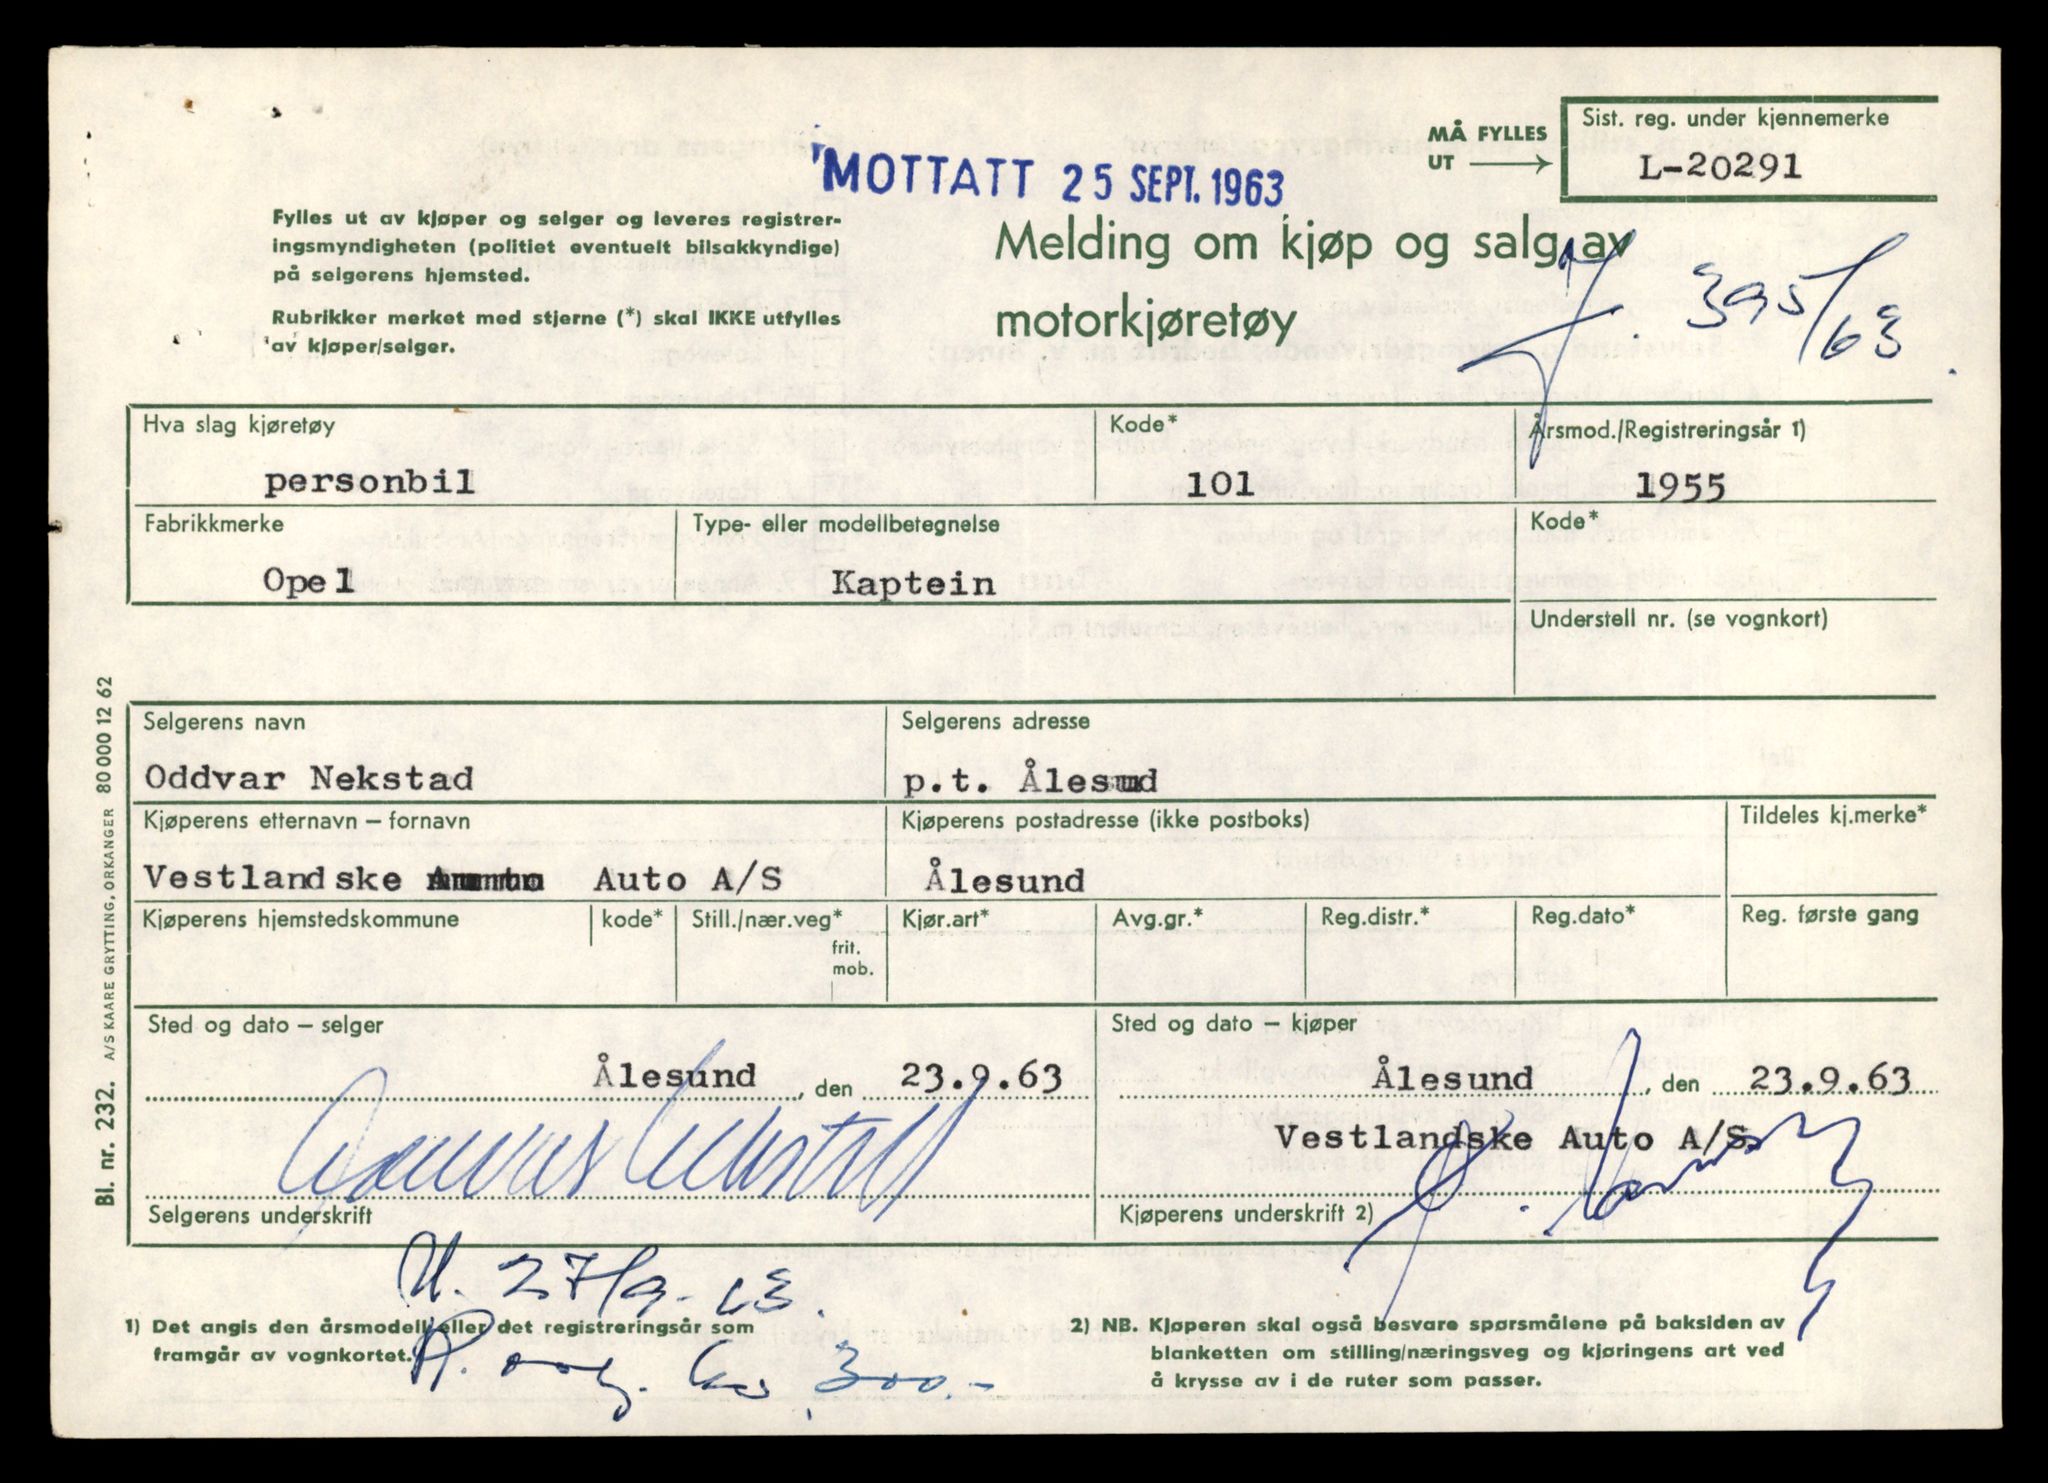 MÅ FYLLES
UT
Sist. reg. under kjennemerke
L-20291
MOTTATT 25 SEPT. 1963
Fylles ut av kjøper og selger og leveres registrer-
ingsmyndigheten (politiet eventuelt bilsakkyndige)
på selgerens hjemsted.
Rubrikker merket med stjerne (*) skal IKKE utfylles
av kjøper/selger.
Melding om kjøp og salg av
motorkjøretøy
J. 395/63
Hva slag kjøretøy
Kode*
Årsmod./Registreringsår 1)
personbil
101
1955
Fabrikkmerke
Type- eller modellbetegnelse
Kode*
Opel
Kaptein
Understell nr. (se vognkort)
Selgerens navn
Selgerens adresse
Oddvar Nekstad
p.t. Ålesund
Kjøperens etternavn – fornavn
Kjøperens postadresse (ikke postboks)
Tildeles kj.merke*
Vestlandske Auto A/S
Ålesund
Kjøperens hjemstedskommune
kode*
Still./nær.veg*
frit.
mob.
Kjør.art*
Avg.gr.*
Reg.distr.*
Reg.dato*
Reg. første gang
Sted og dato – selger
Sted og dato – kjøper
Ålesund, den 23.9.63
Ålesund, den 23.9.63
Vestlandske Auto A/S
Oddvar Nekstad
Selgerens underskrift
Kjøperens underskrift 2)
27/9-63.
1) Det angis den årsmodell eller det registreringsår som
framgår av vognkortet.
300.-
2) NB. Kjøperen skal også besvare spørsmålene på baksiden av
blanketten om stilling/næringsveg og kjøringens art ved
å krysse av i de ruter som passer.
Bl. nr. 232. A/S KAARE GRYTTING, ORKANGER 80 000 12 62